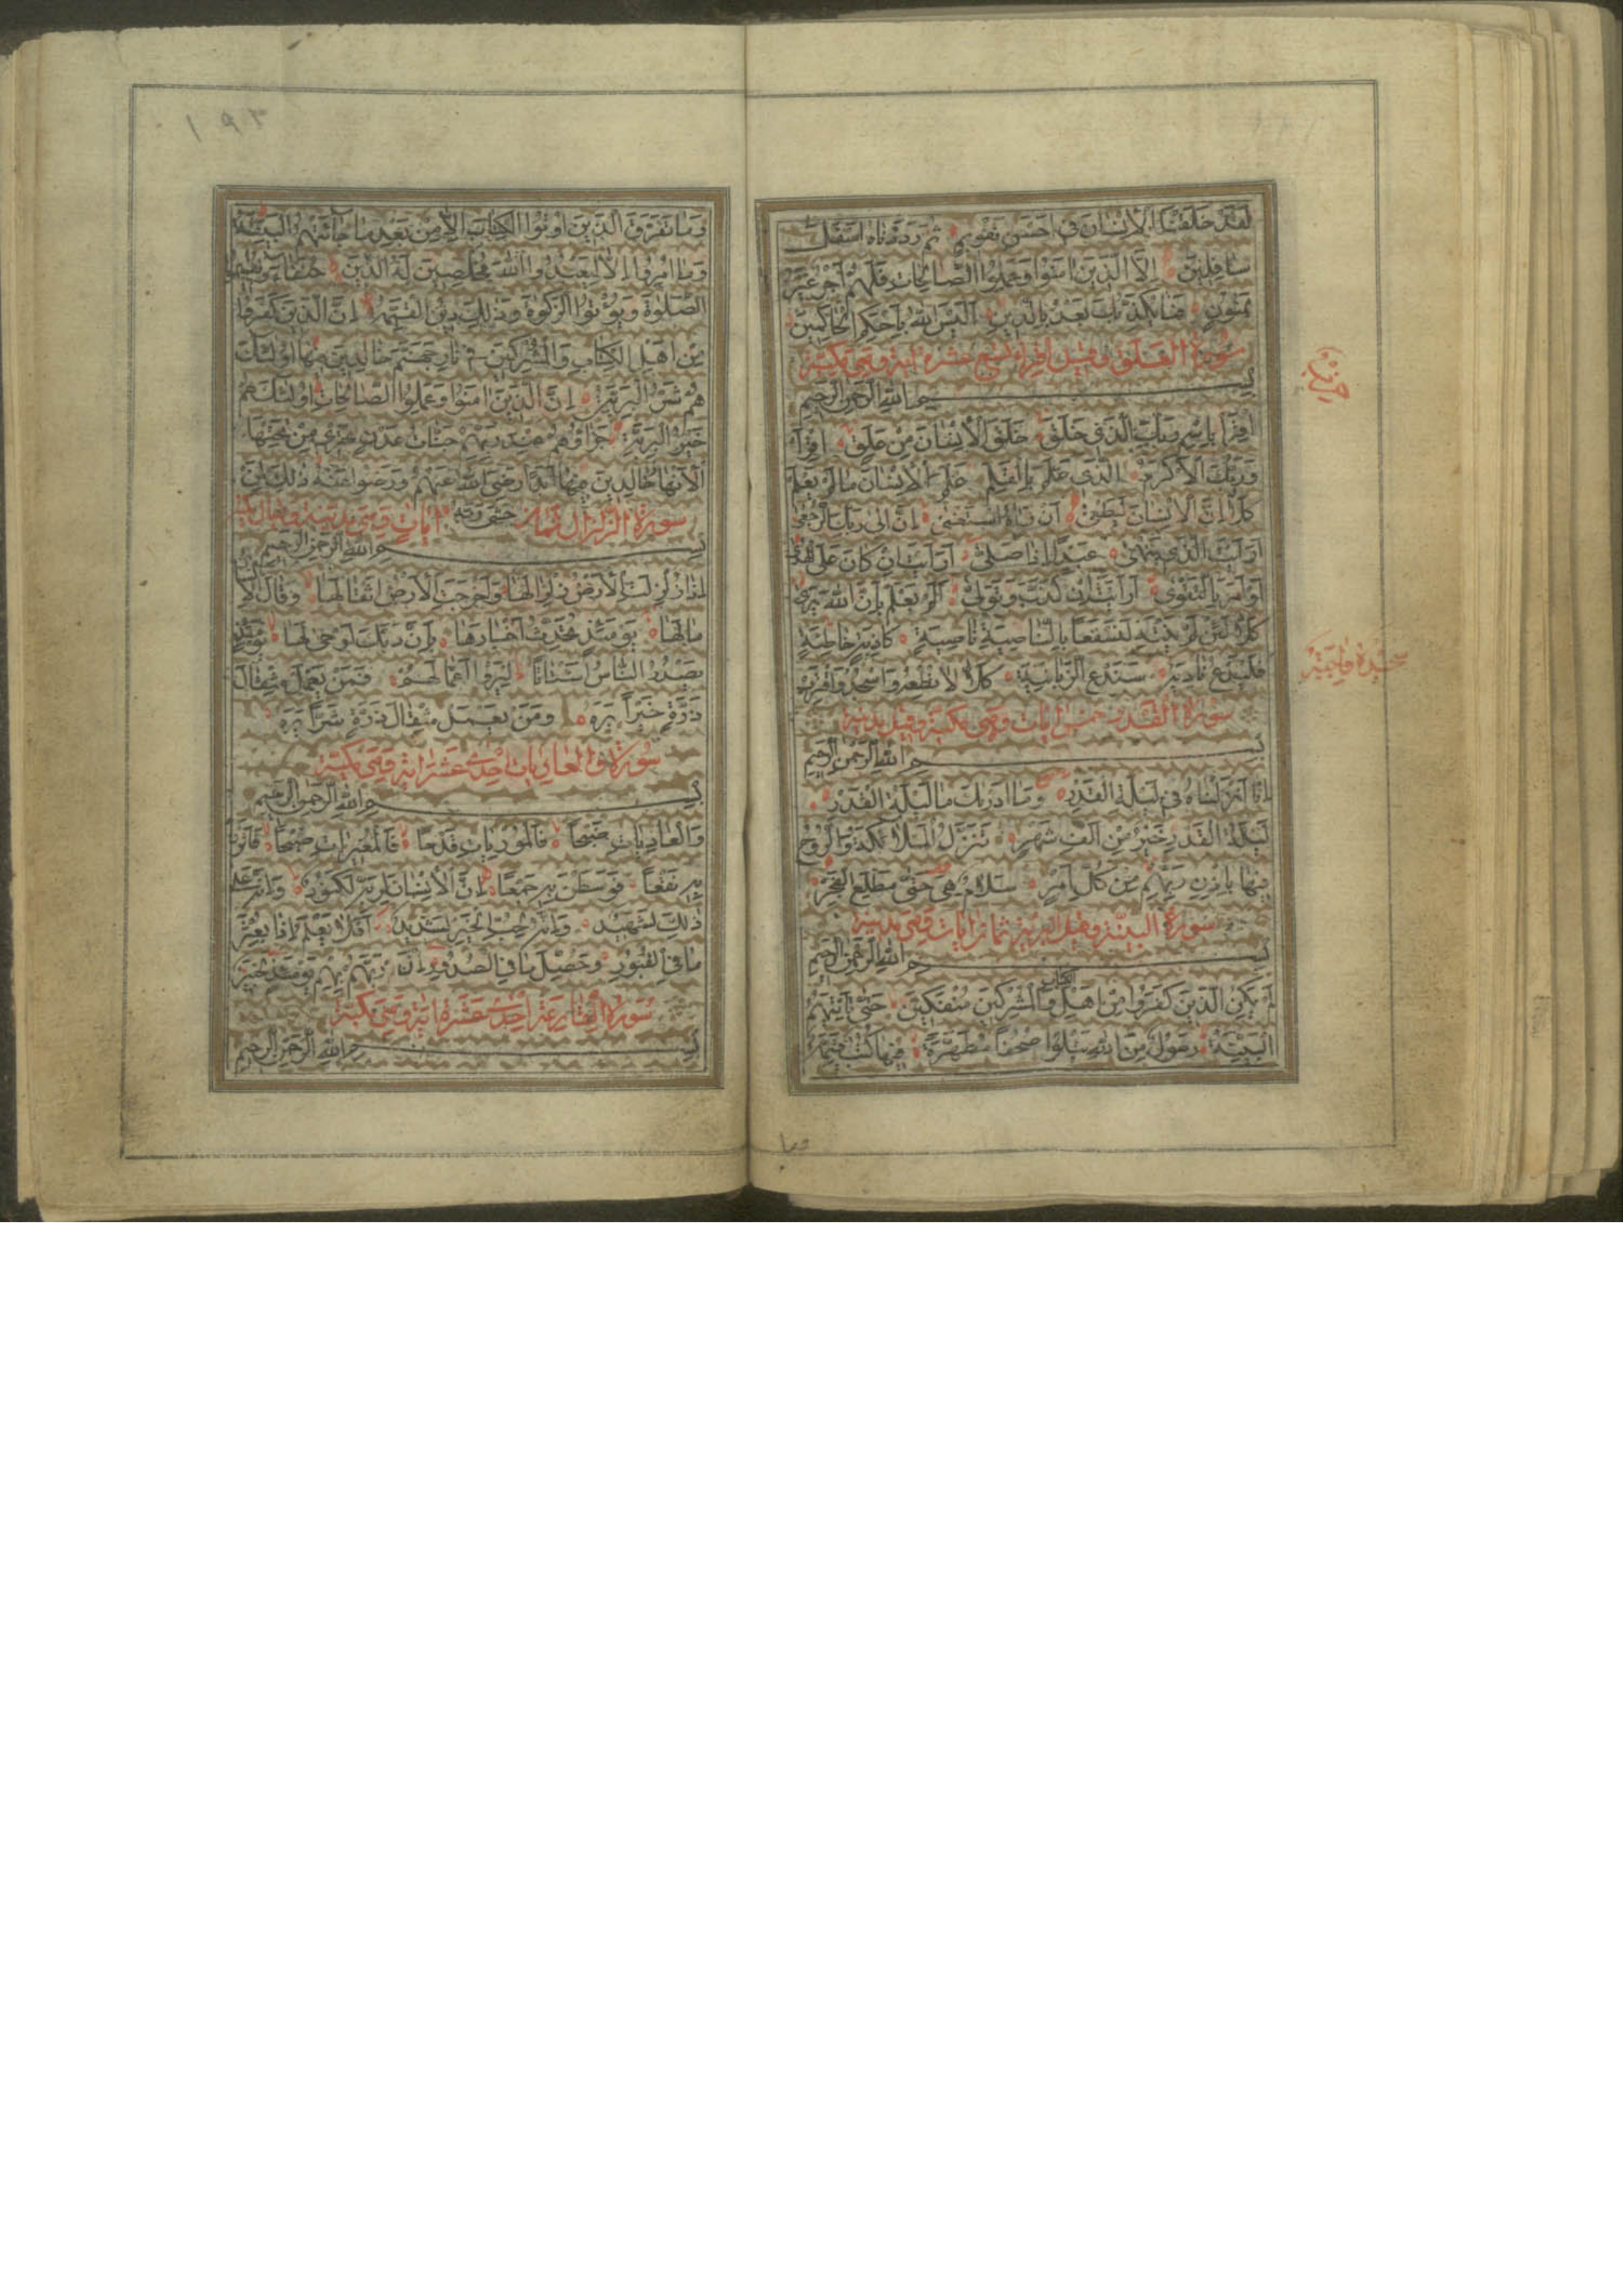 لَقَدْ خَلَقْنَا الْاِنْسَانَ فِي اَحْسَنِ تَقْوِيمٍ ثُمَّ رَدَدْنَاهُ اَسْفَلَ
سَافِلِينَ اِلَّا الَّذِينَ اٰمَنُوا وَعَمِلُوا الصَّالِحَاتِ فَلَهُمْ اَجْرٌ غَيْرُ
مَمْنُونٍ فَمَا يُكَذِّبُكَ بَعْدُ بِالدِّينِ اَلَيْسَ اللهُ بِاَحْكَمِ الْحَاكِمِينَ
سورة العلق وقيل اقرأ تسع عشرة اية وهي مكية
حزب
بسم الله الرحمن الرحيم
اِقْرَأْ بِاسْمِ رَبِّكَ الَّذِي خَلَقَ خَلَقَ الْاِنْسَانَ مِنْ عَلَقٍ اِقْرَأْ
وَرَبُّكَ الْاَكْرَمُ الَّذِي عَلَّمَ بِالْقَلَمِ عَلَّمَ الْاِنْسَانَ مَا لَمْ يَعْلَمْ
كَلَّا اِنَّ الْاِنْسَانَ لَيَطْغٰى اَنْ رَاٰهُ اسْتَغْنٰى اِنَّ اِلٰى رَبِّكَ الرُّجْعٰى
اَرَاَيْتَ الَّذِي يَنْهٰى عَبْدًا اِذَا صَلّٰى اَرَاَيْتَ اِنْ كَانَ عَلَى الْهُدٰى
اَوْ اَمَرَ بِالتَّقْوٰى اَرَاَيْتَ اِنْ كَذَّبَ وَتَوَلّٰى اَلَمْ يَعْلَمْ بِاَنَّ اللهَ يَرٰى
كَلَّا لَئِنْ لَمْ يَنْتَهِ لَنَسْفَعًا بِالنَّاصِيَةِ نَاصِيَةٍ كَاذِبَةٍ خَاطِئَةٍ
فَلْيَدْعُ نَادِيَهُ سَنَدْعُ الزَّبَانِيَةَ كَلَّا لَا تُطِعْهُ وَاسْجُدْ وَاقْتَرِبْ
سجدة واجبة
سورة القدر خمس ايات وهي مكية وقيل مدنية
بسم الله الرحمن الرحيم
اِنَّا اَنْزَلْنَاهُ فِي لَيْلَةِ الْقَدْرِ وَمَا اَدْرٰيكَ مَا لَيْلَةُ الْقَدْرِ
لَيْلَةُ الْقَدْرِ خَيْرٌ مِنْ اَلْفِ شَهْرٍ تَنَزَّلُ الْمَلَائِكَةُ وَالرُّوحُ
فِيهَا بِاِذْنِ رَبِّهِمْ مِنْ كُلِّ اَمْرٍ سَلَامٌ هِيَ حَتّٰى مَطْلَعِ الْفَجْرِ
سورة البينة وقيل البرية ثمان ايات وهي مدنية
بسم الله الرحمن الرحيم
لَمْ يَكُنِ الَّذِينَ كَفَرُوا مِنْ اَهْلِ الكتاب وَالْمُشْرِكِينَ مُنْفَكِّينَ حَتّٰى تَأْتِيَهُمُ
الْبَيِّنَةُ رَسُولٌ مِنَ اللهِ يَتْلُوا صُحُفًا مُطَهَّرَةً فِيهَا كُتُبٌ قَيِّمَةٌ
وما
١٩٣
وَمَا تَفَرَّقَ الَّذِينَ اُوتُوا الْكِتَابَ اِلَّا مِنْ بَعْدِ مَا جَاءَتْهُمُ الْبَيِّنَةُ
وَمَا اُمِرُوا اِلَّا لِيَعْبُدُوا اللهَ مُخْلِصِينَ لَهُ الدِّينَ حُنَفَاءَ وَيُقِيمُوا
الصَّلٰوةَ وَيُؤْتُوا الزَّكٰوةَ وَذٰلِكَ دِينُ الْقَيِّمَةِ اِنَّ الَّذِينَ كَفَرُوا
مِنْ اَهْلِ الْكِتَابِ وَالْمُشْرِكِينَ فِي نَارِ جَهَنَّمَ خَالِدِينَ فِيهَا اُولٰئِكَ
هُمْ شَرُّ الْبَرِيَّةِ اِنَّ الَّذِينَ اٰمَنُوا وَعَمِلُوا الصَّالِحَاتِ اُولٰئِكَ هُمْ
خَيْرُ الْبَرِيَّةِ جَزَاؤُهُمْ عِنْدَ رَبِّهِمْ جَنَّاتُ عَدْنٍ تَجْرِي مِنْ تَحْتِهَا
الْاَنْهَارُ خَالِدِينَ فِيهَا اَبَدًا رَضِيَ اللهُ عَنْهُمْ وَرَضُوا عَنْهُ ذٰلِكَ لِمَنْ
سورة الزلزال ثمان خَشِيَ رَبَّهُ ايات وهي مدنية وقيل
بسم الله الرحمن الرحيم
اِذَا زُلْزِلَتِ الْاَرْضُ زِلْزَالَهَا وَاَخْرَجَتِ الْاَرْضُ اَثْقَالَهَا وَقَالَ الْاِنْسَانُ
مَا لَهَا يَوْمَئِذٍ تُحَدِّثُ اَخْبَارَهَا بِاَنَّ رَبَّكَ اَوْحٰى لَهَا يَوْمَئِذٍ
يَصْدُرُ النَّاسُ اَشْتَاتًا لِيُرَوْا اَعْمَالَهُمْ فَمَنْ يَعْمَلْ مِثْقَالَ
ذَرَّةٍ خَيْرًا يَرَهُ وَمَنْ يَعْمَلْ مِثْقَالَ ذَرَّةٍ شَرًّا يَرَهُ
سورة والعاديات احدى عشر اية وهي مكية
بسم الله الرحمن الرحيم
وَالْعَادِيَاتِ ضَبْحًا فَالْمُورِيَاتِ قَدْحًا فَالْمُغِيرَاتِ صُبْحًا فَاَثَرْنَ
بِهِ نَقْعًا فَوَسَطْنَ بِهِ جَمْعًا اِنَّ الْاِنْسَانَ لِرَبِّهِ لَكَنُودٌ وَاِنَّهُ عَلٰى
ذٰلِكَ لَشَهِيدٌ وَاِنَّهُ لِحُبِّ الْخَيْرِ لَشَدِيدٌ اَفَلَا يَعْلَمُ اِذَا بُعْثِرَ
مَا فِي الْقُبُورِ وَحُصِّلَ مَا فِي الصُّدُورِ اِنَّ رَبَّهُمْ بِهِمْ يَوْمَئِذٍ لَخَبِيرٌ
سورة القارعة احدى عشرة اية وهي مكية
بسم الله الرحمن الرحيم